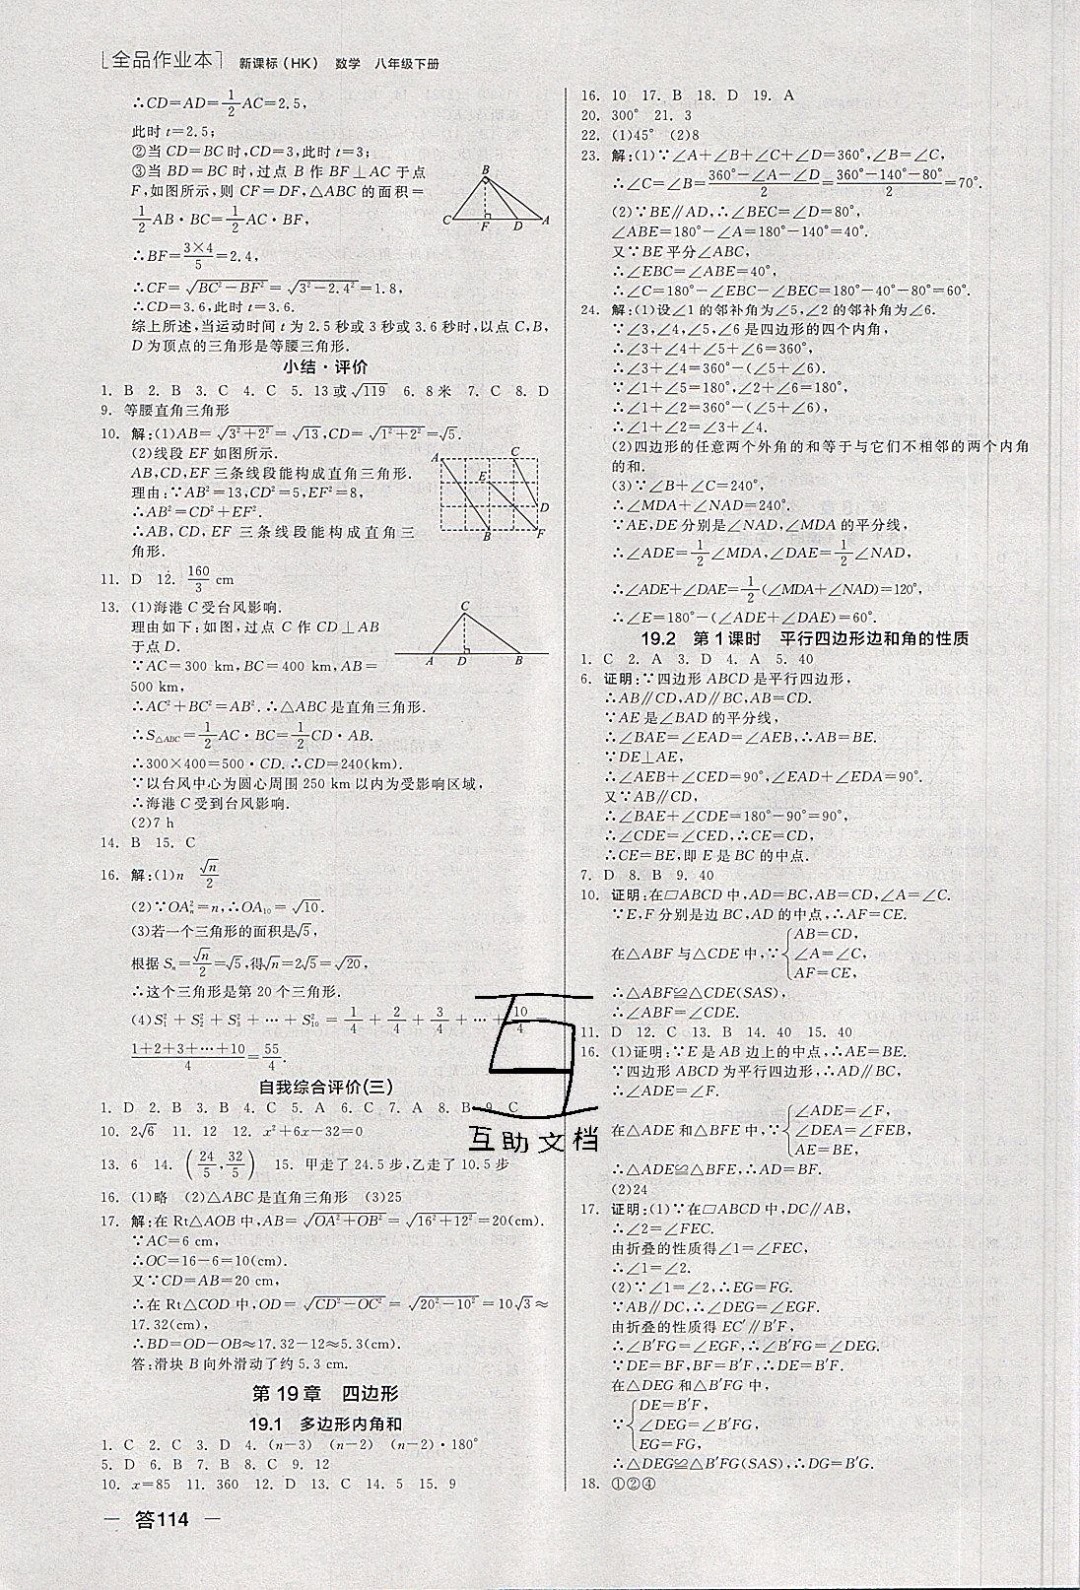 全品作业本 新课标(HK) 数学 八年级下册
∴CD=AD=1/2AC=2.5,
此时t=2.5;
②当CD=BC时,CD=3,此时t=3;
③当BD=BC时,过点B作BF⊥AC于点
F,如图所示,则CF=DF,△ABC的面积=
1/2AB·BC=1/2AC·BF,
∴BF=3×4/5=2.4,
∴CF=√(BC²-BF²)=√(3²-2.4²)=1.8,
∴CD=3.6,此时t=3.6.
综上所述,当运动时间t为2.5秒或3秒或3.6秒时,以点C,B,
D为顶点的三角形是等腰三角形.
B
C F D A
小结·评价
1. B 2. B 3. C 4. C 5. 13或√119 6. 8米 7. C 8. D
9. 等腰直角三角形
10. 解:(1)AB=√(3²+2²)=√13,CD=√(1²+2²)=√5.
(2)线段EF如图所示.
AB,CD,EF三条线段能构成直角三角形.
理由:∵AB²=13,CD²=5,EF²=8,
∴AB²=CD²+EF².
∴AB,CD,EF三条线段能构成直角三
角形.
A C
E
D
B F
11. D 12. 160/3 cm
13. (1)海港C受台风影响.
理由如下:如图,过点C作CD⊥AB
于点D.
∵AC=300 km,BC=400 km,AB=
500 km,
∴AC²+BC²=AB².∴△ABC是直角三角形.
∴S△ABC=1/2AC·BC=1/2CD·AB.
∴300×400=500·CD.∴CD=240(km).
∵以台风中心为圆心周围250 km以内为受影响区域,
∴海港C受到台风影响.
(2)7 h
C
A D B
14. B 15. C
16. 解:(1)n √n/2
(2)∵OA²ₙ=n,∴OA₁₀=√10.
(3)若一个三角形的面积是√5,
根据Sₙ=√n/2=√5,得√n=2√5=√20,
∴这个三角形是第20个三角形.
(4)S₁²+S₂²+S₃²+…+S₁₀²=1/4+2/4+3/4+…+10/4=
1+2+3+…+10/4=55/4.
自我综合评价(三)
1. D 2. B 3. B 4. C 5. A 6. C 7. A 8. B 9. C
10. 2√6 11. 12 12. x²+6x-32=0
13. 6 14. (24/5,32/5) 15. 甲走了24.5步,乙走了10.5步
16. (1)略 (2)△ABC是直角三角形 (3)25
17. 解:在Rt△AOB中,AB=√(OA²+OB²)=√(16²+12²)=20(cm).
∵AC=6 cm,
∴OC=16-6=10(cm).
又∵CD=AB=20 cm,
∴在Rt△COD中,OD=√(CD²-OC²)=√(20²-10²)=10√3≈
17.32(cm),
∴BD=OD-OB≈17.32-12≈5.3(cm).
答:滑块B向外滑动了约5.3 cm.
第19章 四边形
19.1 多边形内角和
1. C 2. C 3. D 4. (n-3) (n-2) (n-2)·180°
5. D 6. B 7. B 8. C 9. 12
10. x=85 11. 360 12. D 13. C 14. 5 15. 9
答114
16. 10 17. B 18. D 19. A
20. 300° 21. 3
22. (1)45° (2)8
23. 解:(1)∵∠A+∠B+∠C+∠D=360°,∠B=∠C,
∴∠C=∠B=360°-∠A-∠D/2=360°-140°-80°/2=70°.
(2)∵BE∥AD,∴∠BEC=∠D=80°,
∠ABE=180°-∠A=180°-140°=40°.
又∵BE平分∠ABC,
∴∠EBC=∠ABE=40°,
∴∠C=180°-∠EBC-∠BEC=180°-40°-80°=60°.
24. 解:(1)设∠1的邻补角为∠5,∠2的邻补角为∠6.
∵∠3,∠4,∠5,∠6是四边形的四个内角,
∴∠3+∠4+∠5+∠6=360°,
∴∠3+∠4=360°-(∠5+∠6).
∵∠1+∠5=180°,∠2+∠6=180°,
∴∠1+∠2=360°-(∠5+∠6),
∴∠1+∠2=∠3+∠4.
(2)四边形的任意两个外角的和等于与它们不相邻的两个内角
的和.
(3)∵∠B+∠C=240°,
∴∠MDA+∠NAD=240°.
∵AE,DE分别是∠NAD,∠MDA的平分线,
∴∠ADE=1/2∠MDA,∠DAE=1/2∠NAD,
∴∠ADE+∠DAE=1/2(∠MDA+∠NAD)=120°,
∴∠E=180°-(∠ADE+∠DAE)=60°.
19.2 第1课时 平行四边形边和角的性质
1. C 2. A 3. D 4. A 5. 40
6. 证明:∵四边形ABCD是平行四边形,
∴AB∥CD,AD∥BC,AB=CD.
∵AE是∠BAD的平分线,
∴∠BAE=∠EAD=∠AEB,∴AB=BE.
∵DE⊥AE,
∴∠AEB+∠CED=90°,∠EAD+∠EDA=90°.
又∵AB∥CD,
∴∠BAE+∠CDE=180°-90°=90°,
∴∠CDE=∠CED,∴CE=CD,
∴CE=BE,即E是BC的中点.
7. D 8. B 9. 40
10. 证明:在▱ABCD中,AD=BC,AB=CD,∠A=∠C.
∵E,F分别是边BC,AD的中点,∴AF=CE.
在△ABF与△CDE中,∵{AB=CD,
∠A=∠C,
AF=CE,
∴△ABF≌△CDE(SAS),
∴∠ABF=∠CDE.
11. D 12. C 13. B 14. 40 15. 40
16. (1)证明:∵E是AB边上的中点,∴AE=BE.
∵四边形ABCD为平行四边形,∴AD∥BC,
∴∠ADE=∠F.
在△ADE和△BFE中,∵{∠ADE=∠F,
∠DEA=∠FEB,
AE=BE,
∴△ADE≌△BFE,∴AD=BF.
(2)24
17. 证明:(1)∵在▱ABCD中,DC∥AB,
∴∠2=∠FEC.
由折叠的性质得∠1=∠FEC,
∴∠1=∠2.
(2)∵∠1=∠2,∴EG=FG.
∵AB∥DC,∴∠DEG=∠EGF.
由折叠的性质得EC′∥B′F,
∴∠B′FG=∠EGF,∴∠B′FG=∠DEG.
∵DE=BF,BF=B′F,∴DE=B′F.
在△DEG和△B′FG中,
∵{DE=B′F,
∠DEG=∠B′FG,
EG=FG,
∴△DEG≌△B′FG(SAS),∴DG=B′G.
18. ①②④
互助文档